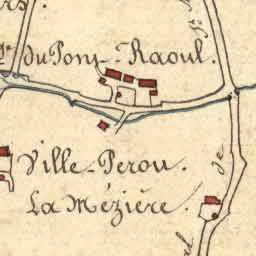 du Pont-Raoul.
Ville-Perou.
La Mézière.
de